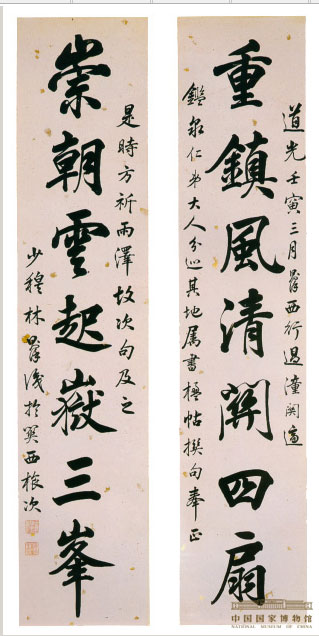 道光壬寅三月則徐西行過潼關適
重鎮風清關四扇
鑑泉仁弟大人分巡其地属書楹帖撰句奉正
是時方祈雨澤故次句及之
崇朝雲起嶽三峯
少穆林則徐識於關西旅次
中国国家博物馆
NATIONAL MUSEUM OF CHINA